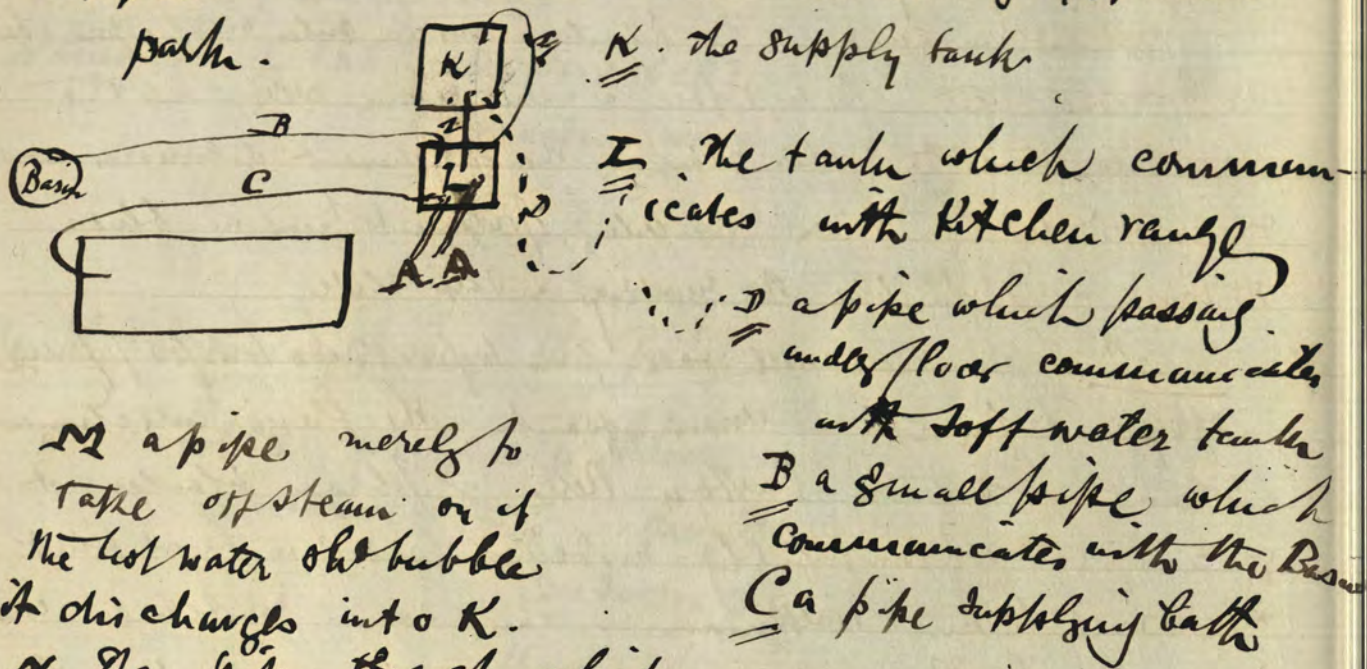 park.
K
K. the supply tank
B
Basin
C
L
D
A A
L the tank which commun-
icates with Kitchen range
D a pipe which passing
under floor communicates
with soft water tank
B a small pipe which
communicates with the Basin
C a pipe supplying bath
M a pipe merely to
take off steam or if
the hot water shd bubble
it discharges into K.